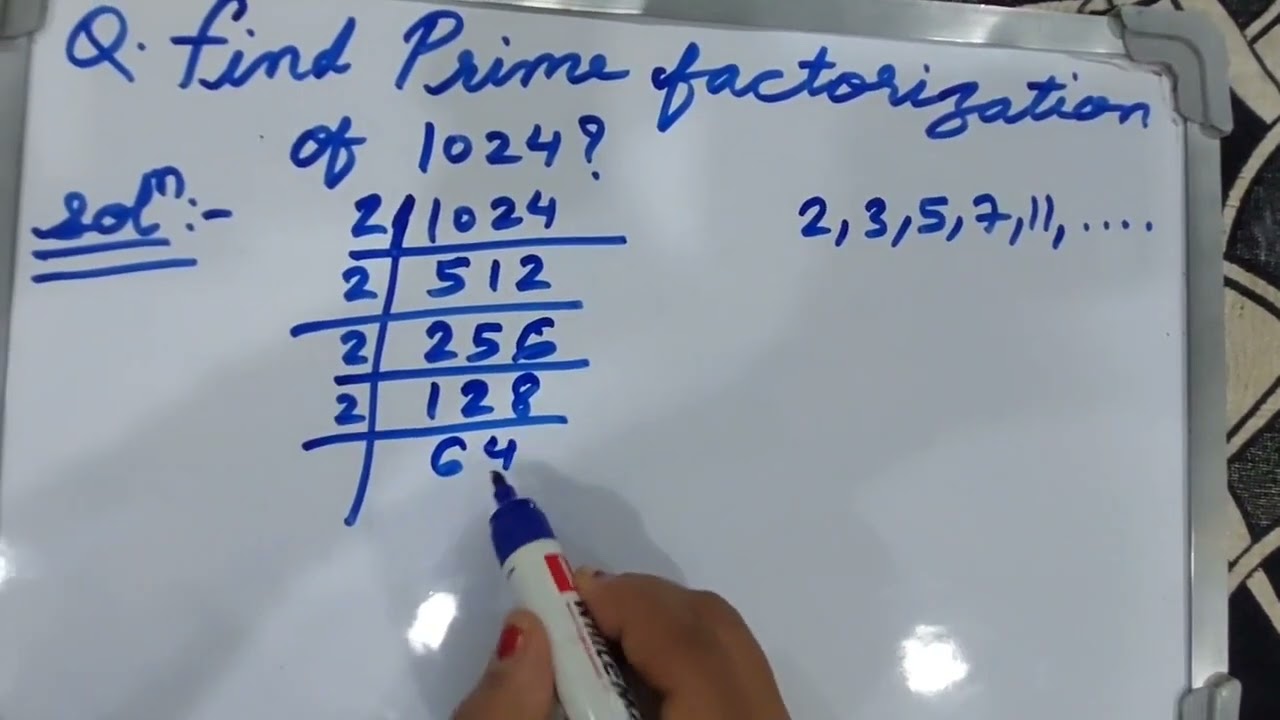 Q. Find Prime factorization
of 1024?
Solⁿ:-
2, 3, 5, 7, 11, ....
2 | 1024
2 | 512
2 | 256
2 | 128
64